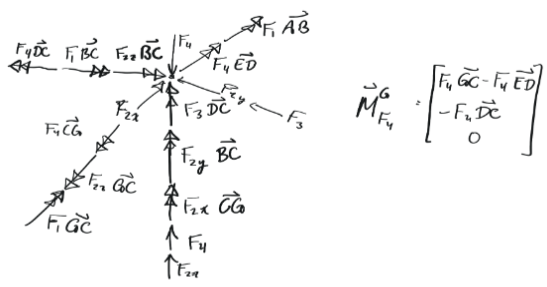 F₁ A⃗B⃗
F₄ D⃗C⃗ F₁ B⃗C⃗ F₂₂ B⃗C⃗ F₄
F₄ E⃗D⃗
F₂ₓ F₃ D⃗C⃗ F₃
F₄ C⃗G⃗
F₂y B⃗C⃗
F₂ₓ G⃗C⃗ F₂ₓ C⃗G⃗
F₁ G⃗C⃗
F₄
M⃗ᴳ_F₄ = [ F₄ G⃗C⃗ - F₄ E⃗D⃗
- F₄ D⃗C⃗
0 ]